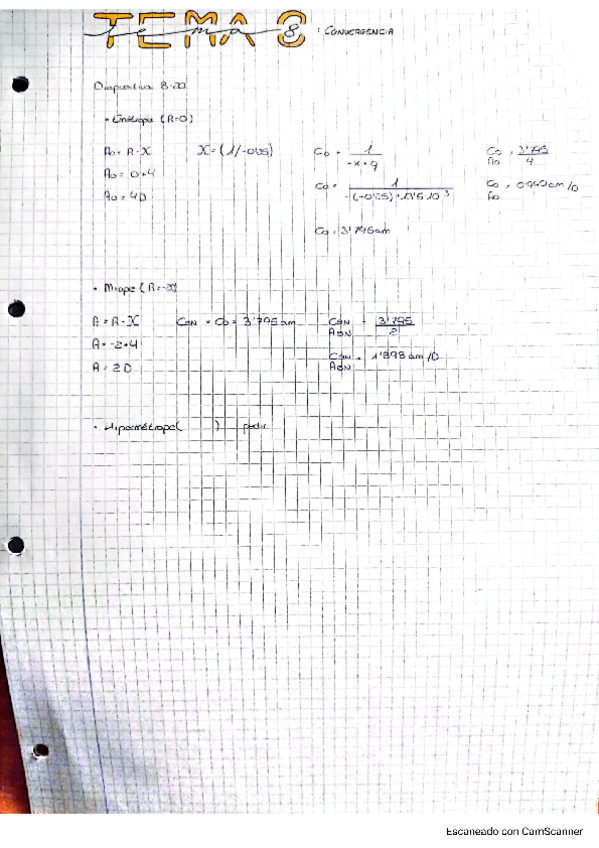 TEMA 8
Tema 8 : CONVERGENCIA
Diapositiva 8-20
• Emétrope (R=0)
A₀ = R-X
A₀ = 0+4
A₀ = 4D
X = (1/-0'25)
C₀ = 1 / -x+q
C₀ = 1 / -(-0'25)+13'5·10⁻³
C₀ = 3'795am
C₀/A₀ = 3'795/4
C₀/A₀ = 0'949am/D
• Miope (R=-2)
A = R-X
A = -2+4
A = 2D
C₀N = C₀ = 3'795am
C₀N/A₀N = 3'795/2
C₀N/A₀N = 1'898am/D
• Hipermétrope ( ) pedir
Escaneado con CamScanner